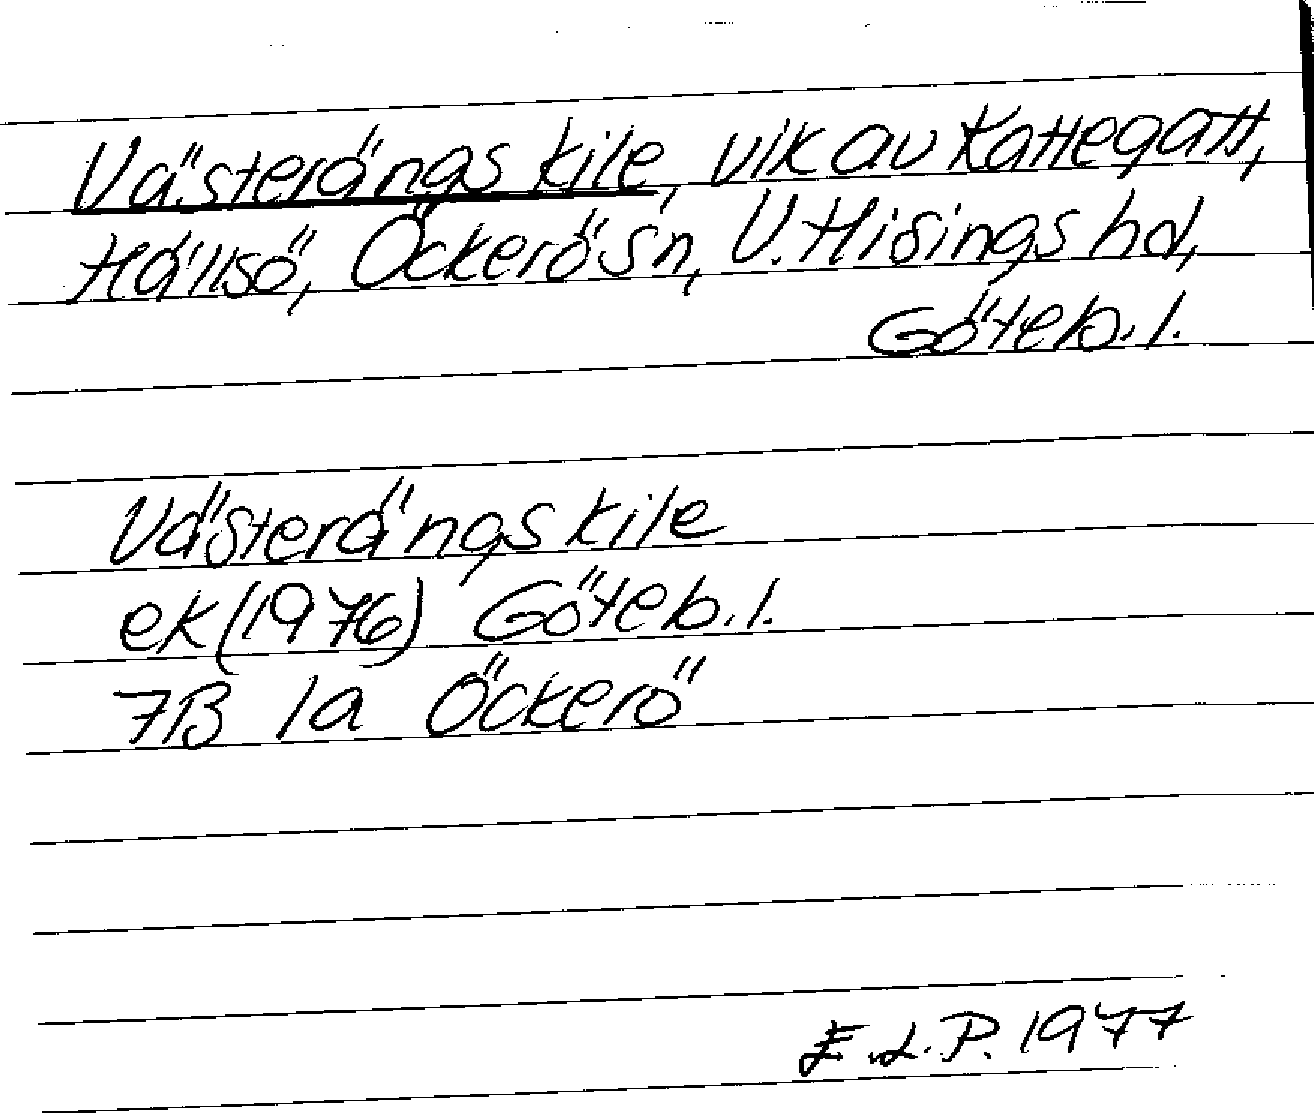 Västerängs kile, vik av Kattegatt,
Hällsö, Öckerö sn, V. Hisings hd,
Göteb. l.
Västerängs kile
ek (1976) Göteb. l.
7B 1a Öckerö
E.L.P. 1977